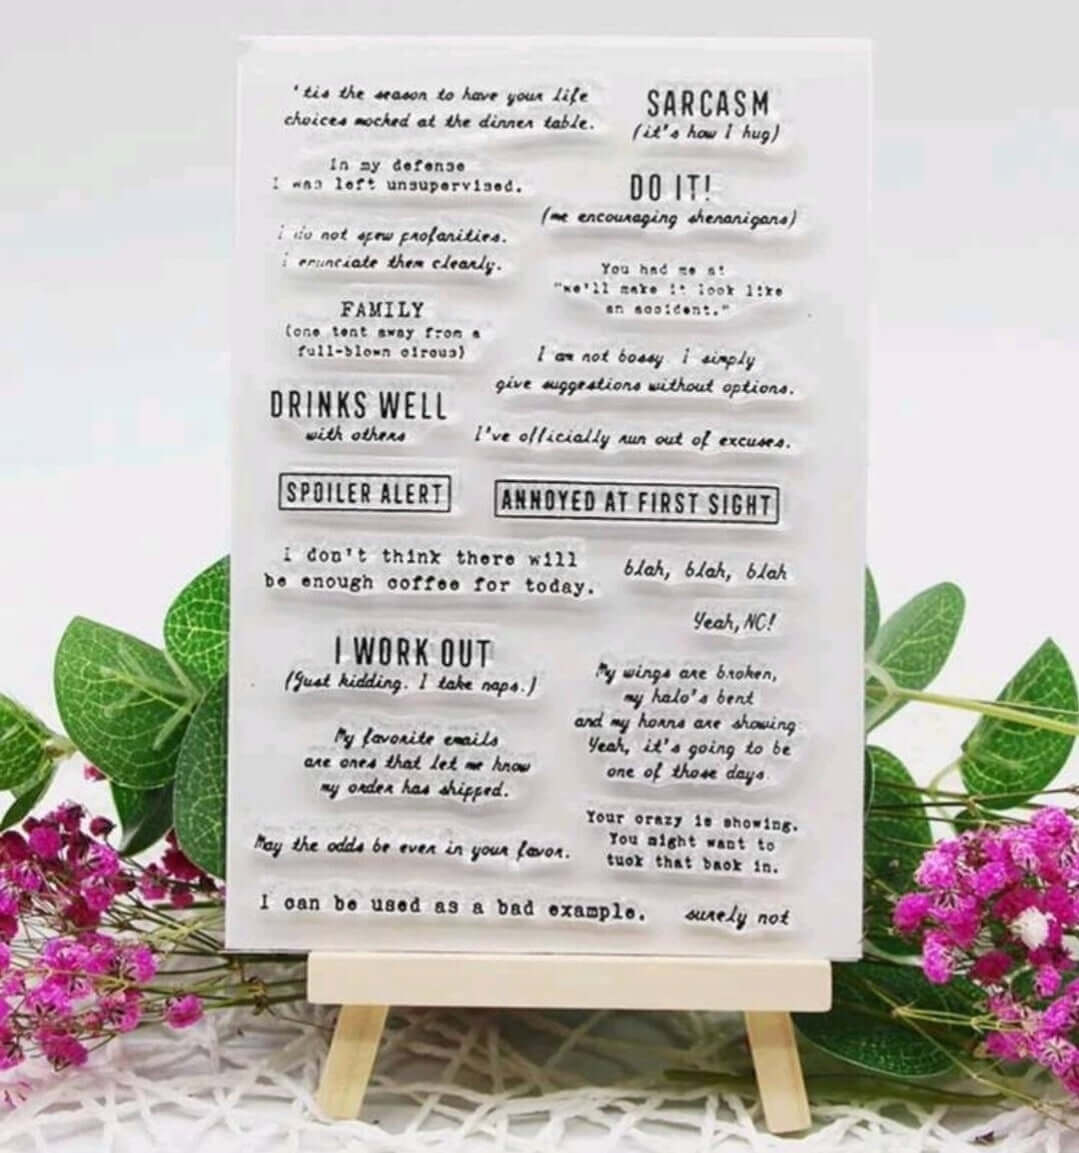 'tis the season to have your life
choices mocked at the dinner table.
SARCASM
(it's how I hug)
In my defense
I was left unsupervised.
DO IT!
(me encouraging shenanigans)
i do not spew profanities.
i enunciate them clearly.
You had me at
"we'll make it look like
an accident."
FAMILY
(one tent away from a
full-blown circus)
I am not bossy. i simply
give suggestions without options.
DRINKS WELL
with others
I've officially run out of excuses.
SPOILER ALERT
ANNOYED AT FIRST SIGHT
i don't think there will
be enough coffee for today.
blah, blah, blah
Yeah, NO!
I WORK OUT
(Just kidding. I take naps.)
My wings are broken,
my halo's bent
and my horns are showing.
Yeah, it's going to be
one of those days.
My favorite emails
are ones that let me know
my order has shipped.
Your crazy is showing.
You might want to
tuck that back in.
May the odds be ever in your favor.
I can be used as a bad example.
surely not